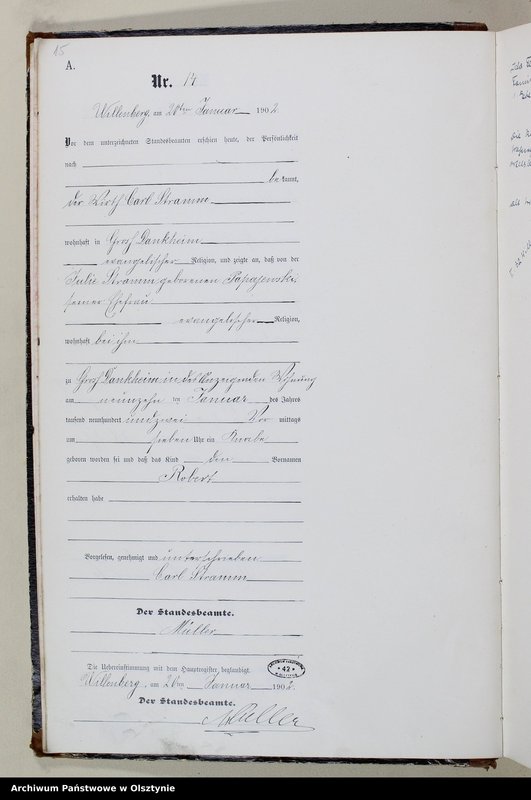 15
A.
Nr. 14
Willenberg, am 20ten Januar 1902
Vor dem unterzeichneten Standesbeamten erschien heute, der Persönlichkeit
nach
bekannt,
der Wirth Carl Stramm
wohnhaft in Groß Dankheim
evangelischer Religion, und zeigte an, daß von der
Julie Stramm geborenen Papajewski,
seiner Ehefrau
evangelischer Religion,
wohnhaft bei ihm
zu Groß Dankheim in des Anzeigenden Wohnung
am neunzehn ten Januar des Jahres
tausend neunhundert und zwei Vor mittags
um sieben Uhr ein Knabe
geboren worden sei und daß das Kind den Vornamen
Robert
erhalten habe
Vorgelesen, genehmigt und unterschrieben
Carl Stramm
Der Standesbeamte.
Müller
Die Uebereinstimmung mit dem Hauptregister beglaubigt.
42
Willenberg, am 20ten Januar 1902.
Der Standesbeamte.
Müller
Archiwum Państwowe w Olsztynie